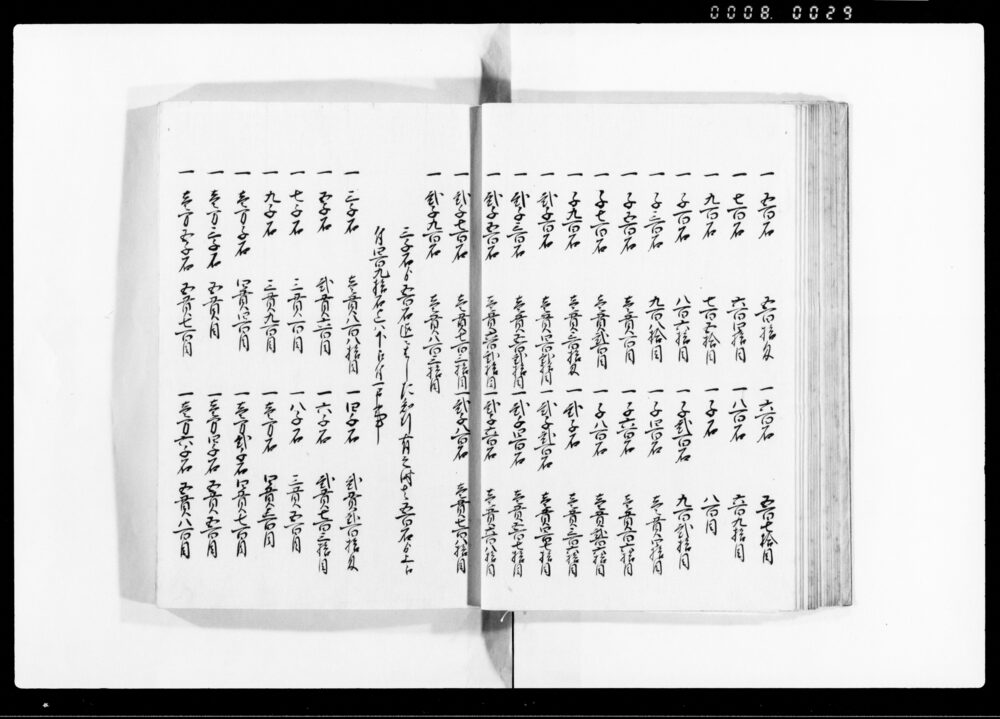 一 五百石 五百拾匁 一 六百石 五百七拾目
一 七百石 六百四拾目 一 八百石 六百九拾目
一 九百石 七百五拾目 一 千石 八百目
一 千百石 八百六拾目 一 千弐百石 九百弐拾目
一 千三百石 九百八拾目 一 千四百石 壱貫 拾目
一 千五百石 壱貫百目 一 千六百石 壱貫百六拾目
一 千七百石 壱貫弐百目 一 千八百石 壱貫弐百六拾目
一 千九百石 壱貫三百拾匁 一 弐千石 壱貫三百六拾目
一 弐千百石 壱貫四百弐拾目 一 弐千弐百石 壱貫四百七拾目
一 弐千三百石 壱貫五百弐拾目 一 弐千四百石 壱貫五百七拾目
一 弐千五百石 壱貫六百弐拾目 一 弐千六百石 壱貫六百八拾目
一 弐千七百石 壱貫七百三拾目 一 弐千八百石 壱貫七百八拾目
一 弐千九百石 壱貫八百三拾目
三千石ゟ五百石迄 知行有之時者五百石ゟ上
付四百九拾石とハ不 付可申事
一 三千石 壱貫八百八拾目 一 四千石 弐貫弐百拾匁
一 五千石 弐貫六百目 一 六千石 弐貫七百三拾目
一 七千石 三貫百目 一 八千石 三貫五百目
一 九千石 三貫九百目 一 壱万石 四貫 百目
一 壱万千石 四貫 百目 一 壱万弐千石 四貫七百目
一 壱万三千石 五貫目 一 壱万四千石 五貫五百目
一 壱万五千石 五貫七百目 一 壱万六千石 五貫八百目
0008. 0029